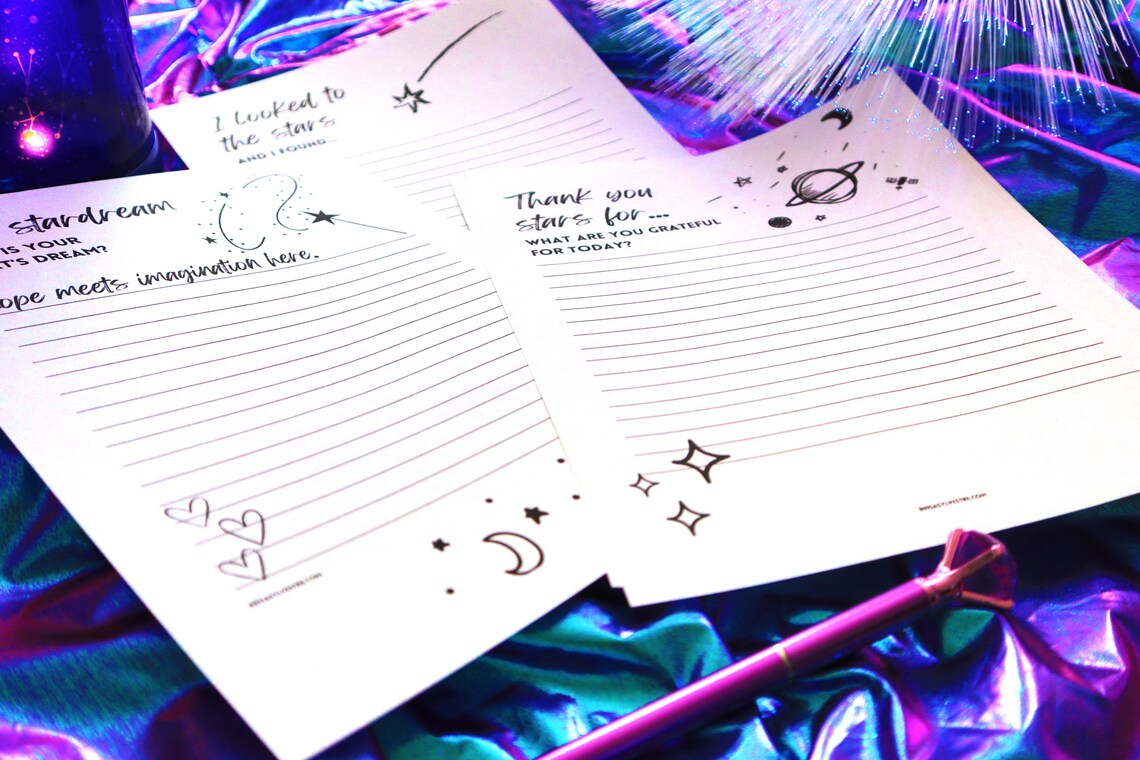 I looked to
the stars
AND I FOUND...
stardream
IS YOUR
T'S DREAM?
ope meets imagination here.
Thank you
stars for...
WHAT ARE YOU GRATEFUL
FOR TODAY?